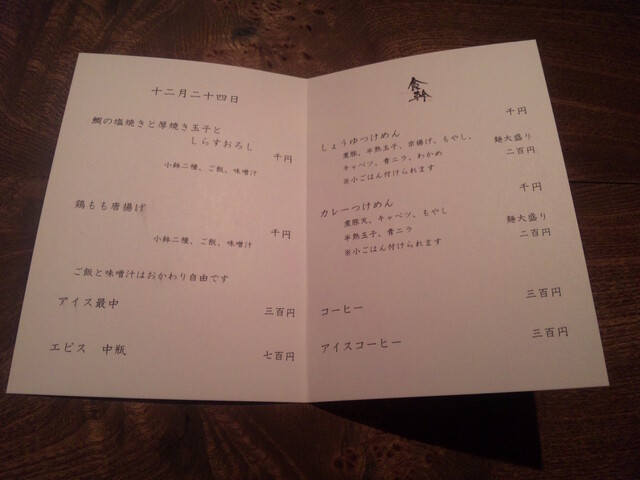 十二月二十四日
鯛の塩焼きと厚焼き玉子と
しらすおろし
千円
小鉢二種、ご飯、味噌汁
鶏もも唐揚げ
千円
小鉢二種、ご飯、味噌汁
ご飯と味噌汁はおかわり自由です
アイス最中
三百円
エビス 中瓶
七百円
食幹
千円
しょうゆつけめん
煮豚、半熟玉子、京揚げ、もやし、
キャベツ、青ニラ、わかめ
※小ごはん付けられます
麺大盛り
二百円
千円
カレーつけめん
煮豚天、キャベツ、もやし
半熟玉子、青ニラ
※小ごはん付けられます
麺大盛り
二百円
コーヒー
三百円
アイスコーヒー
三百円